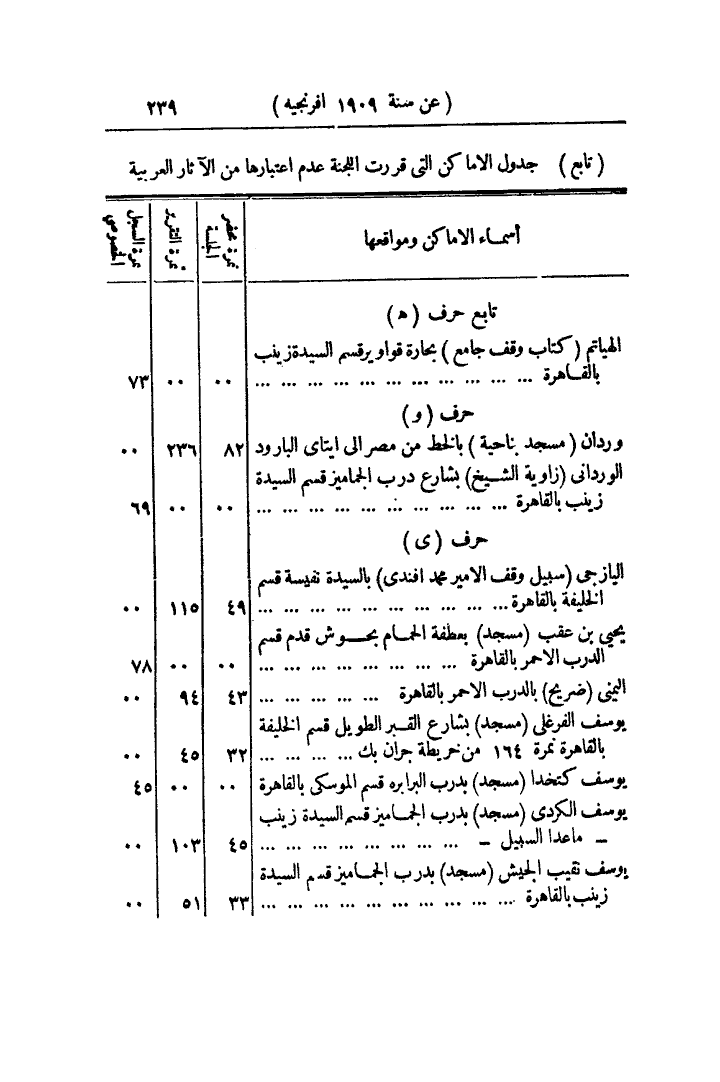 ( عن سنة ١٩٠٩ افرنجيه ) ٢٣٩
( تابع ) جدول الاماكن التى قررت اللجنة عدم اعتبارها من الآثار العربية
أسماء الاماكن ومواقعها | نمرة محضر الجلسة | نمرة التقرير | نمرة السجل الخصوصى
تابع حرف ( ه )
الهياتم ( كتاب وقف جامع ) بحارة قواوير قسم السيدة زينب
بالقاهرة ... ... ... ... ... ... ... ... ... ... ... ٠٠ ٠٠ ٧٣
حرف ( و )
وردان ( مسجد بناحية ) بالخط من مصر الى ايتاى البارود ٨٢ ٢٣٦ ٠٠
الوردانى (زاوية الشيخ) بشارع درب الجماميز قسم السيدة
زينب بالقاهرة ... ... ... ... ... ... ... ... ... ... ٠٠ ٠٠ ٦٩
حرف ( ى )
اليازجى (سبيل وقف الامير محمد افندى) بالسيدة نفيسة قسم
الخليفة بالقاهرة ... ... ... ... ... ... ... ... ... ... ٤٩ ١١٥ ٠٠
يحيى بن عقب (مسجد) بعطفة الحمام بحوش قدم قسم
الدرب الاحمر بالقاهرة ... ... ... ... ... ... ... ... ٠٠ ٠٠ ٧٨
اليمنى (ضريح) بالدرب الاحمر بالقاهرة ... ... ... ... ... ٤٣ ٩٤ ٠٠
يوسف الفرغلى (مسجد) بشارع القبر الطويل قسم الخليفة
بالقاهرة نمرة ١٦٤ من خريطة جران بك ... ... ... ... ٣٢ ٤٥ ٠٠
يوسف كتخدا (مسجد) بدرب البرابره قسم الموسكى بالقاهرة ٠٠ ٠٠ ٤٥
يوسف الكردى (مسجد) بدرب الجماميز قسم السيدة زينب
– ماعدا السبيل – ... ... ... ... ... ... ... ... ٤٥ ١٠٣ ٠٠
يوسف نقيب الجيش (مسجد) بدرب الجماميز قسم السيدة
زينب بالقاهرة ... ... ... ... ... ... ... ... ... ... ٣٣ ٥١ ٠٠